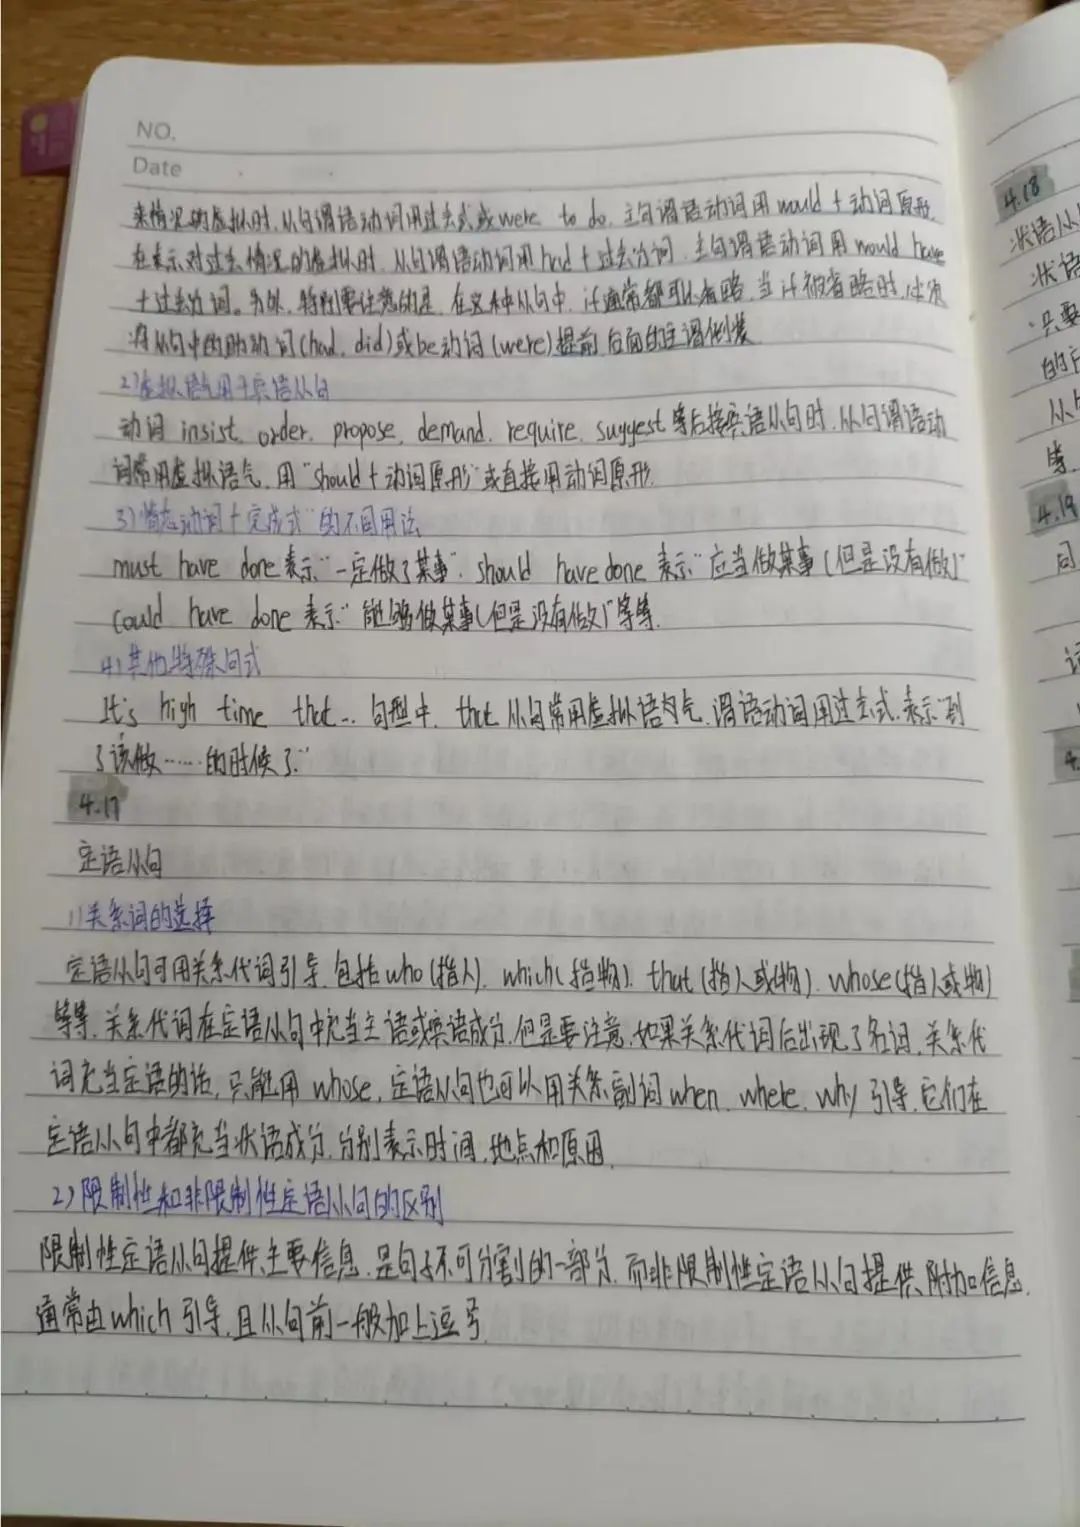 NO.
Date
来情况的虚拟时,从句谓语动词用过去式或were to do,主句谓语动词用would+动词原形.
在表示对过去情况的虚拟时,从句谓语动词用had+过去分词,主句谓语动词用would have
+过去分词。另外,特别要注意的是,在这种从句中,if通常都可以省略,当if被省略时,必须
将从句中的助动词(had, did)或be动词(were)提前,后面的主谓倒装
2)虚拟语气用于宾语从句
动词insist, order, propose, demand, require, suggest等后接宾语从句时,从句谓语动
词常用虚拟语气,用"should+动词原形"或直接用动词原形.
3)"情态动词+完成式"的不同用法
must have done表示"一定做了某事", should have done表示"应当做某事(但是没有做)"
could have done表示"能够做某事(但是没有做)"等等.
4)其他特殊句式
It's high time that...句型中, that从句常用虚拟语气,谓语动词用过去式,表示"到
了该做……的时候了."
4.17
定语从句
1)关系词的选择
定语从句可用关系代词引导,包括who(指人), which(指物), that(指人或物), whose(指人或物)
等等,关系代词在定语从句中充当主语或宾语成分,但是要注意,如果关系代词后出现了名词,关系代
词充当定语的话,只能用whose,定语从句也可以用关系副词when, where, why引导,它们在
定语从句中都充当状语成分,分别表示时间,地点和原因.
2)限制性和非限制性定语从句的区别
限制性定语从句提供主要信息,是句子不可分割的一部分,而非限制性定语从句提供附加信息,
通常由which引导,且从句前一般加上逗号.
4.18
状语从
状语
只要
的
从
等
4.19
同